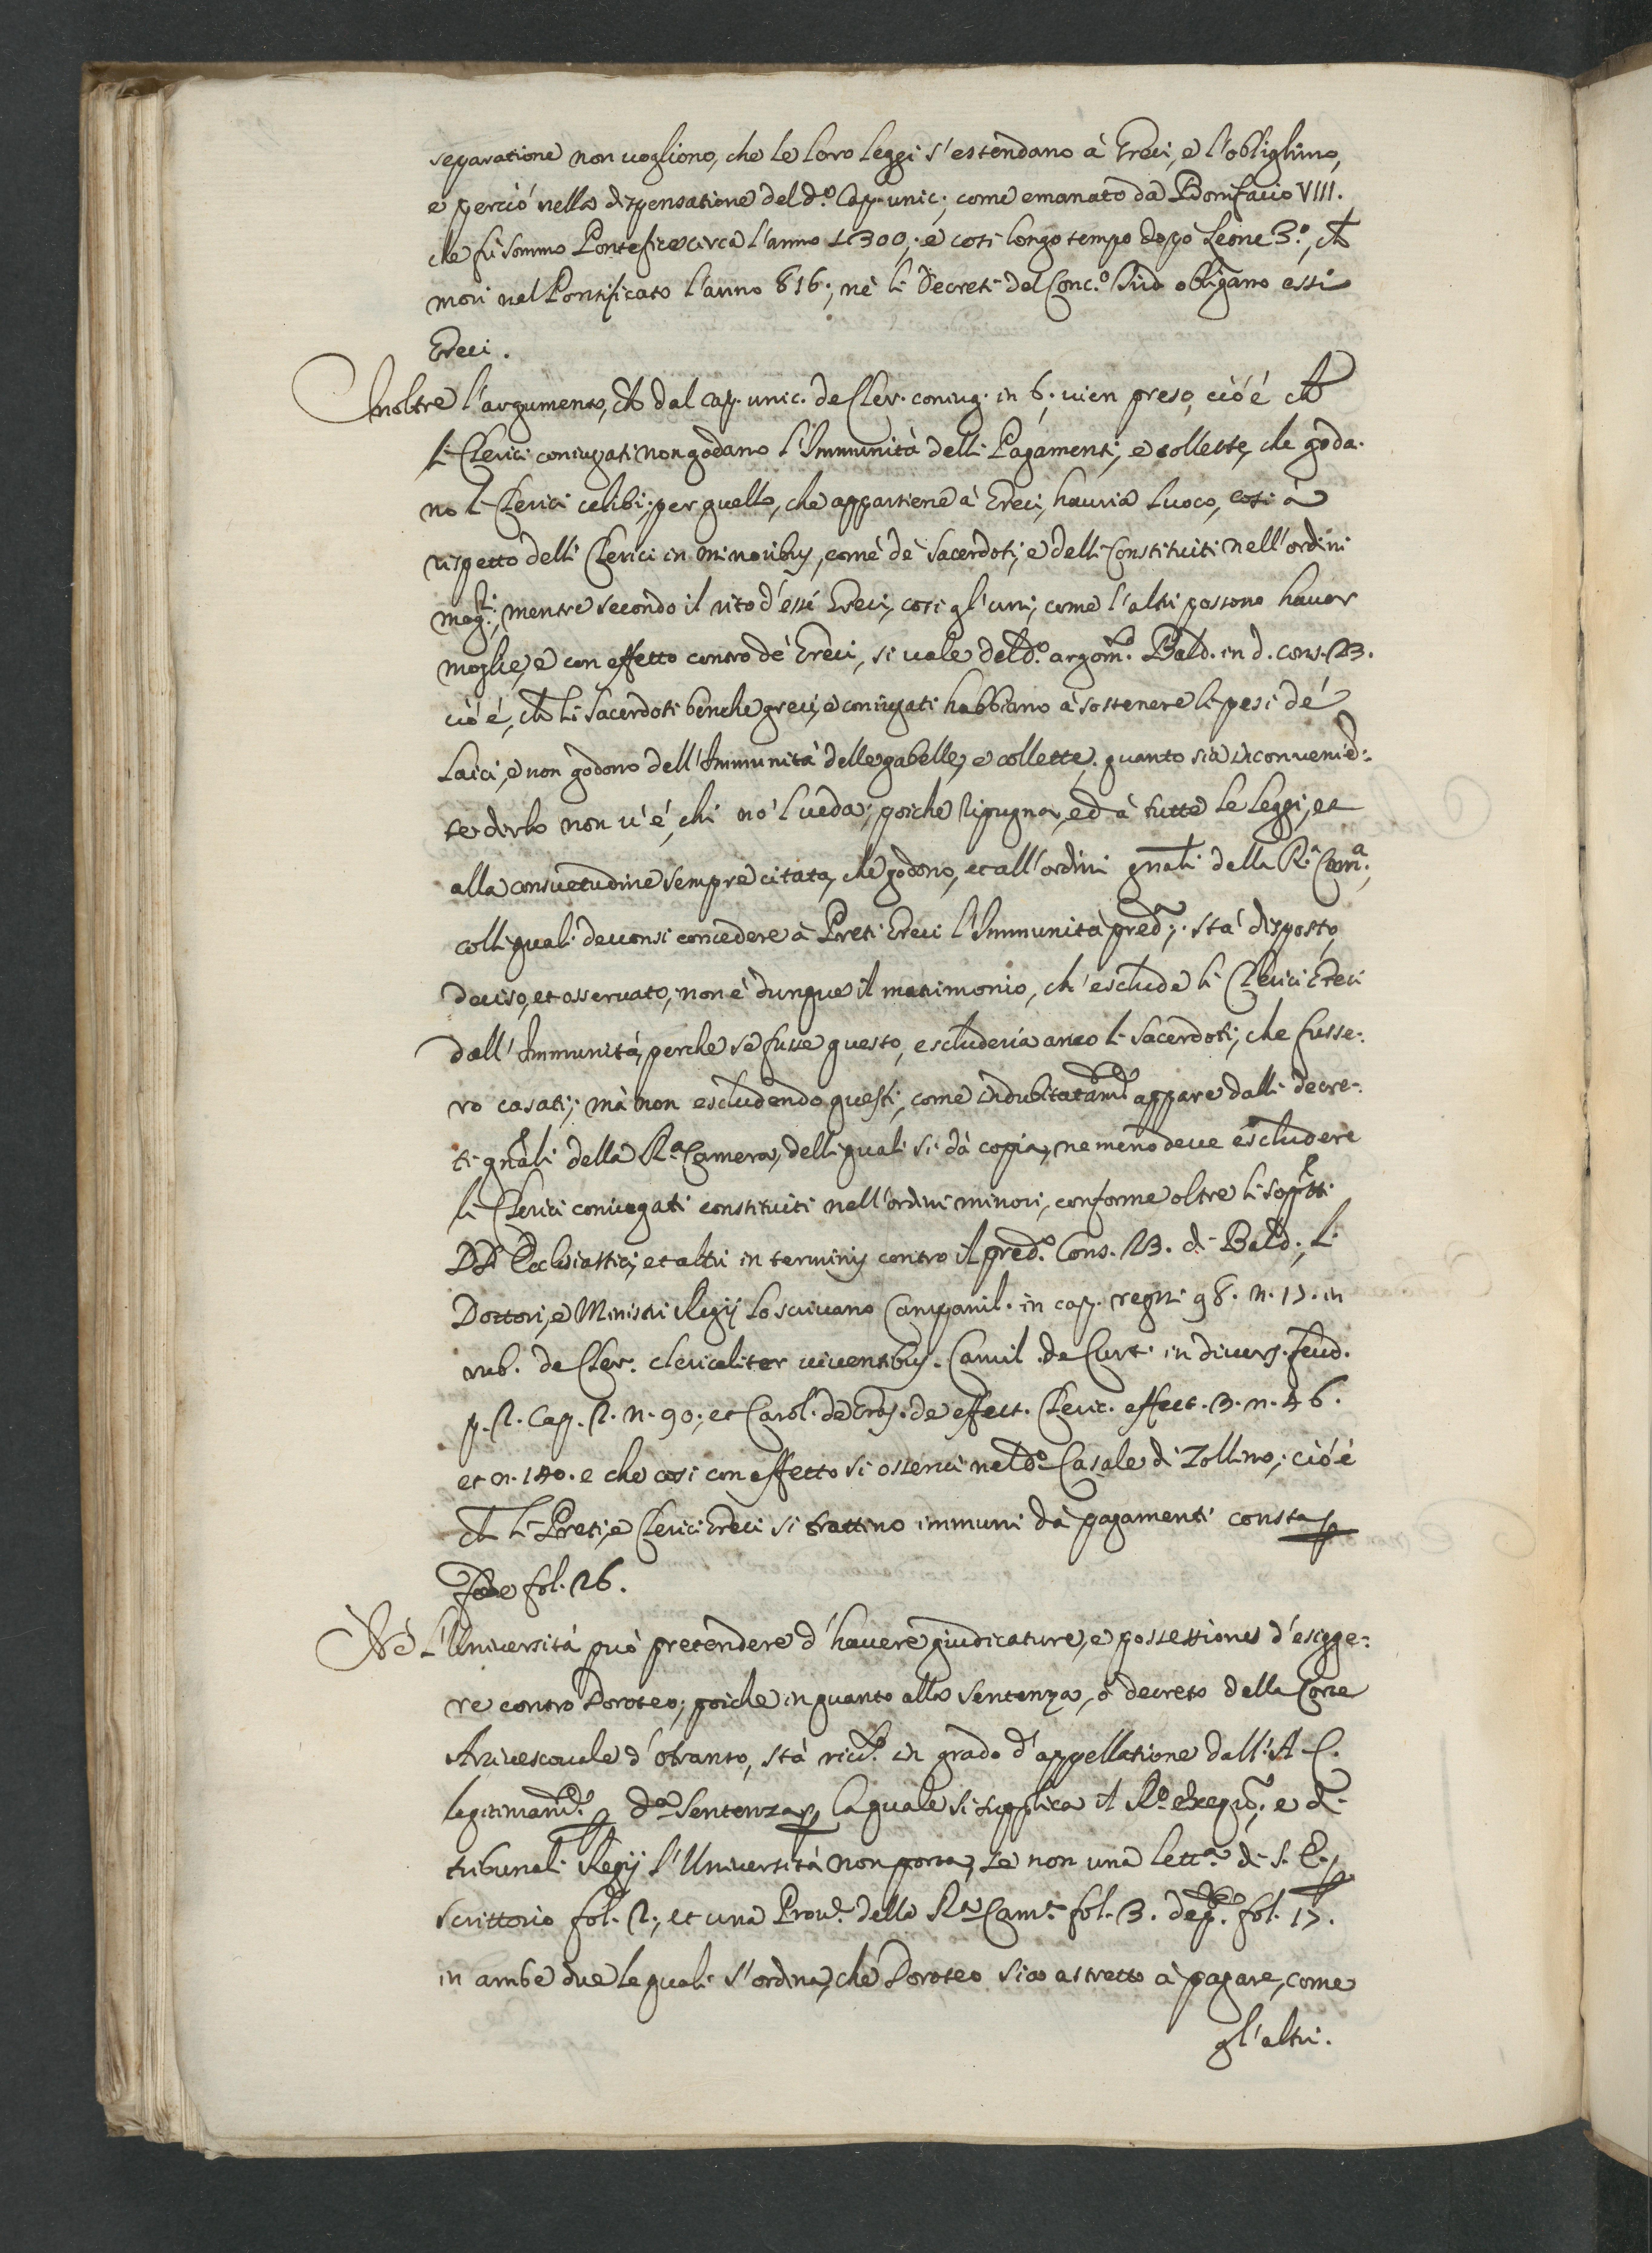 separatione non uogliono, che le loro leggi s'estendano à Greci, e l'oblighino,
e perciò nella dispensatione del d.º Cap. unic; come emanato da Bonifacio VIII.
che fù sommo Pontefice circa l'anno 1300; e così longo tempo dopò Leone 3.º, ch
morì nel Pontificato l'anno 816; nè li Decreti del Conc.º obligano essi
Greci.
Inoltre l'argumento, ch dal cap. unic. de Cler. coniug. in 6. uien preso, ció é ch
li Clerici coniugati non godano l'Immunità delli Pagamenti, e collette, che goda-
no li Clerici celibi; per quello, che appartiene à Greci, hauria luoco, così à
rispetto delli Clerici in minoribus, come dè Sacerdoti, e delli Constituiti nell'ordini
magri; mentre secondo il rito d'essi Greci, così gl'uni, come l'altri possono hauer
moglie, e con effetto contro dè Greci, si uale del d.º argom.to Bald. in d. cons. 23.
ció é, ch li Sacerdoti benche greci, e coniugati habbiano à sostenere li pesi dé
Laici, e non godono dell'Immunità delle gabelle, e collette. quanto sia inconuenie-
te dirlo non u'é, chi no'l ueda; poiche ripugna, ed à tutte le leggi, et
alla consuetudine sempre citata, che godono, et all'ordini gnali della R.ª Cam.ª,
colli quali deuonsi concedere à Preti Greci l'Immunità pred.ª; stà disposto,
deciso, et osseruato, non è dunque il matrimonio, ch'esclude li Clerici Greci
dall'Immunità, perche se fusse questo, escluderia anco li Sacerdoti, che fusse-
ro casati; mà non escludendo questi, come indubitatam.te appare dalli decre-
ti gnali della R.ª Camera, delli quali si dà copia, ne meno deue escludere
li Clerici coniugati constituiti nell'ordini minori, conforme oltre li sopratti
DD. Ecclesiastici, et altri in terminis contro il pred.º Cons. 23. di Bald., li
Dottori, e Ministri Regij lo scriuano Campanil. in cap. regni 98. n. 17. in
rub. de Cler. clericaliter uiuentibus. Camil. de Curt. in diuers. feud.
p. 2. Cap. 2. n. 90; et Carol. de Gras. de effect. Cleric. effect. 3. n. 46.
et n. 140. e che così con effetto si osserui nel d.º Casale di Zollino; ció é
ch li Preti, e Clerici Greci si trattino immuni dà pagamenti consta p
fede fol. 26.
Nè l'Università può pretendere d'hauere giudicature, e possessiones d'esigge-
re contro Doroteo; poiche in quanto alla Sentenza, ò decreto della Corte
Arciuescouale d'Otranto, stà in grado d'appellatione dall'A. C.
legitimam.te d.ª Sentenza, p la quale si supplica il R.º exequr. e di
tribunali Regij l'Università non porta, se non una lett.ª di S. E. p
scrittorio fol. 2; et una Prou.ª della R.ª Cam.ª fol. 3. fol. 17.
in ambe due le quali s'ordina, che Doroteo sia astretto à pagare, come
gl'altri.